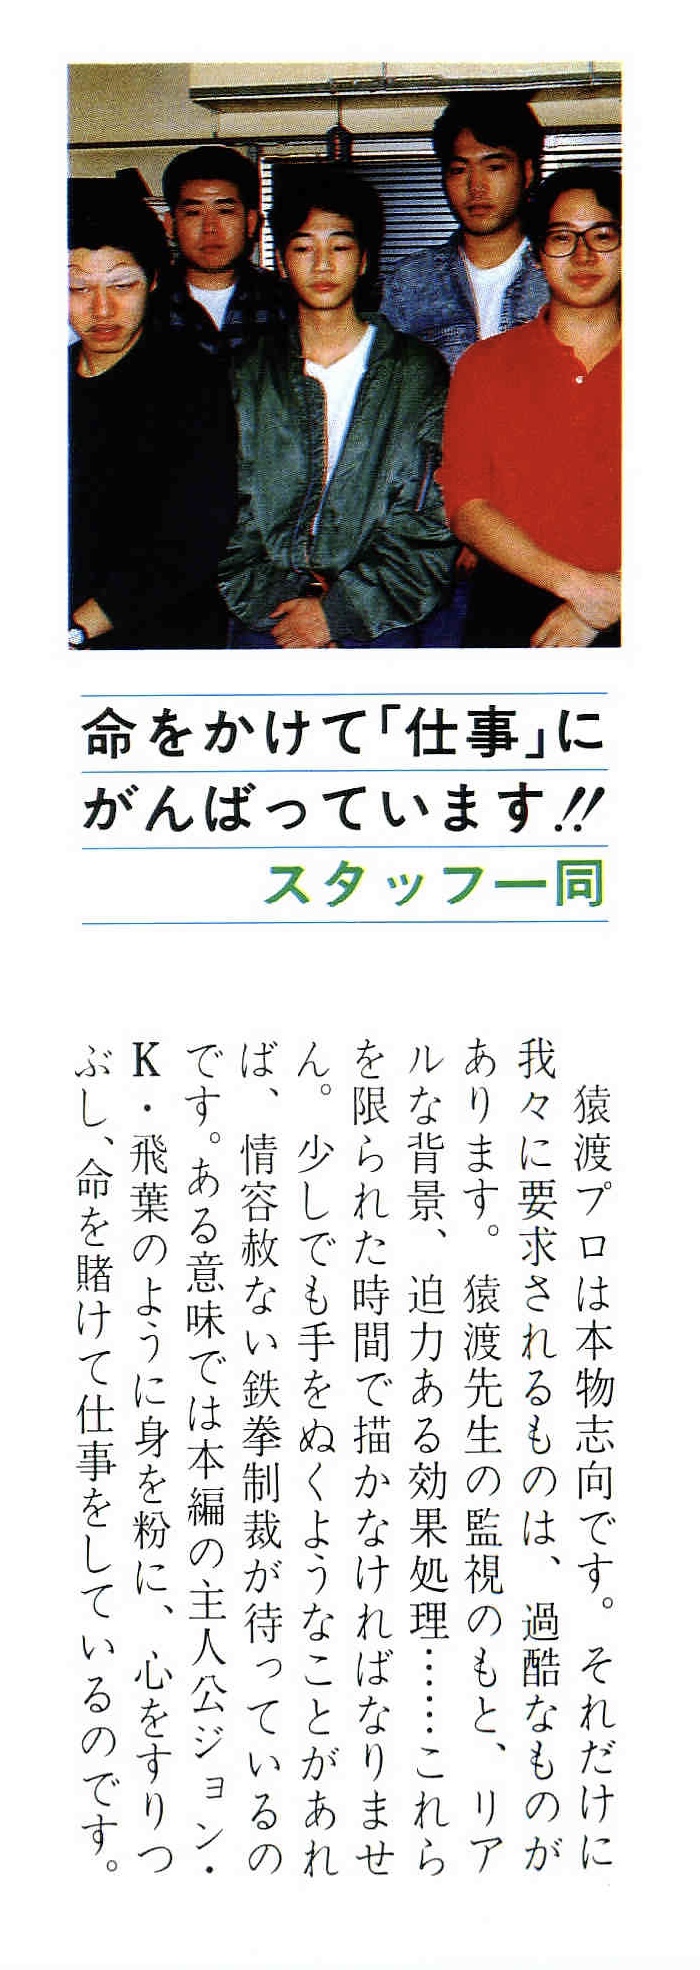 命をかけて「仕事」に
がんばっています!!
スタッフ一同
猿渡プロは本物志向です。それだけに
我々に要求されるものは、過酷なものが
あります。猿渡先生の監視のもと、リア
ルな背景、迫力ある効果処理……これら
を限られた時間で描かなければなりませ
ん。少しでも手をぬくようなことがあれ
ば、情容赦ない鉄拳制裁が待っているの
です。ある意味では本編の主人公ジョン・
K・飛葉のように身を粉に、心をすりつ
ぶし、命を賭けて仕事をしているのです。